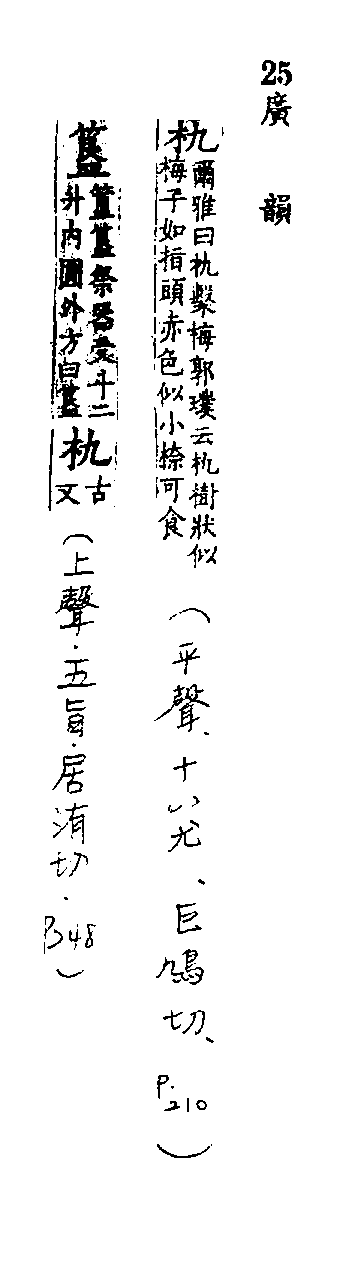 25
廣韻
朹爾雅曰朹檕梅郭璞云朹樹狀似
梅子如指頭赤色似小㮈可食
（平聲、十八尤、巨鳩切、P.210）
簋簠簋祭器受斗二
升內圓外方曰簋
朹古
文
（上聲．五旨．居洧切．P348）